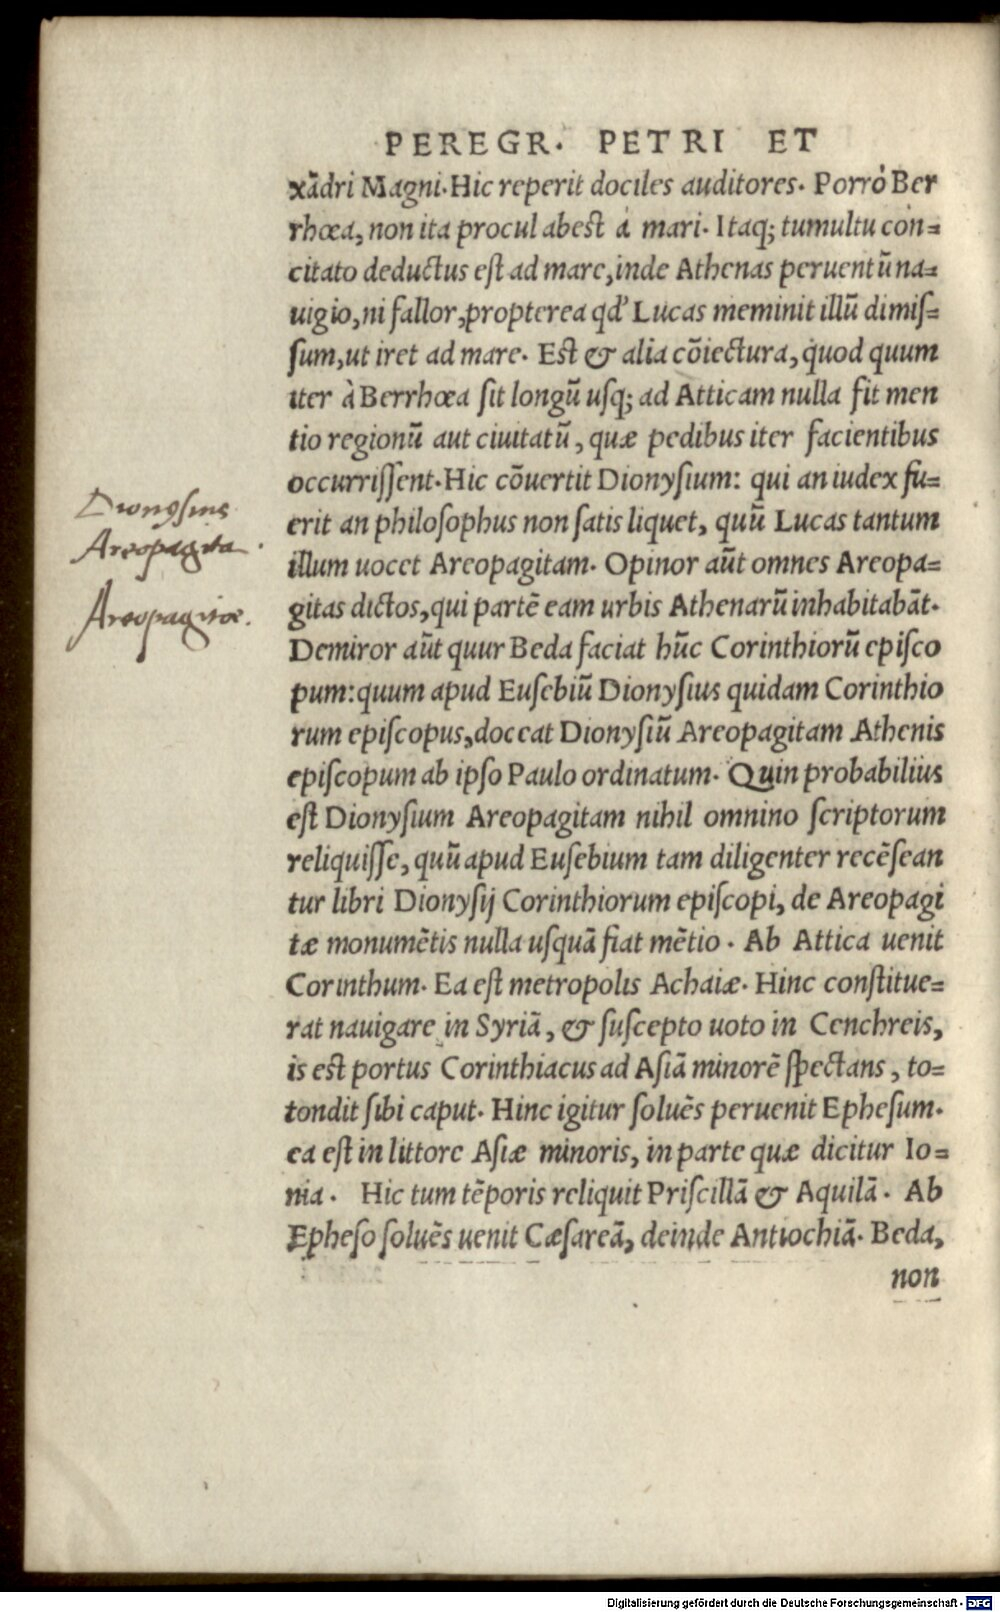 PEREGR. PETRI ET
xādri Magni. Hic reperit dociles auditores. Porrò Ber
rhœa, non ita procul abest à mari. Itaq; tumultu con=
citato deductus est ad mare, inde Athenas peruentū na=
uigio, ni fallor, propterea qd' Lucas meminit illū dimis=
sum, ut iret ad mare. Est & alia cōiectura, quod quum
iter à Berrhœa sit longū usq; ad Atticam nulla fit men
tio regionū aut ciuitatū, quæ pedibus iter facientibus
occurrissent. Hic cōuertit Dionysium: qui an iudex fu=
erit an philosophus non satis liquet, quū Lucas tantum
illum uocet Areopagitam. Opinor aūt omnes Areopa=
gitas dictos, qui partē eam urbis Athenarū inhabitabāt.
Demiror aūt quur Beda faciat hūc Corinthiorū episco
pum: quum apud Eusebiū Dionysius quidam Corinthio
rum episcopus, doceat Dionysiū Areopagitam Athenis
episcopum ab ipso Paulo ordinatum. Quin probabilius
est Dionysium Areopagitam nihil omnino scriptorum
reliquisse, quū apud Eusebium tam diligenter recēsean
tur libri Dionysij Corinthiorum episcopi, de Areopagi
tæ monumētis nulla usquā fiat mētio. Ab Attica uenit
Corinthum. Ea est metropolis Achaiæ. Hinc constitue=
rat nauigare in Syriā, & suscepto uoto in Cenchreis,
is est portus Corinthiacus ad Asiā minorē spectans, to=
tondit sibi caput. Hinc igitur soluēs peruenit Ephesum.
ea est in littore Asiæ minoris, in parte quæ dicitur Io=
nia. Hic tum tēporis reliquit Priscillā & Aquilā. Ab
Epheso soluēs uenit Cæsareā, deinde Antiochiā. Beda,
non
Dionysius
Areopagita.
Areopagitæ.
Digitalisierung gefördert durch die Deutsche Forschungsgemeinschaft - DFG